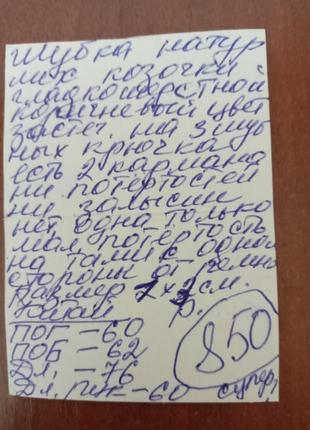 шубка натур
мех козочки
гладкошерстной
коричневый цвет
застег. на 3 шуб
ных крючка
есть 2 кармана
ни потертостей
ни залысин
нет одна только
мал. потертость
на талии с одной
стороны от ремня
Размер см.
р.
ПОГ – 60
ПОБ – 62
Дл. – 76
Дл. рук – 60 супер
850